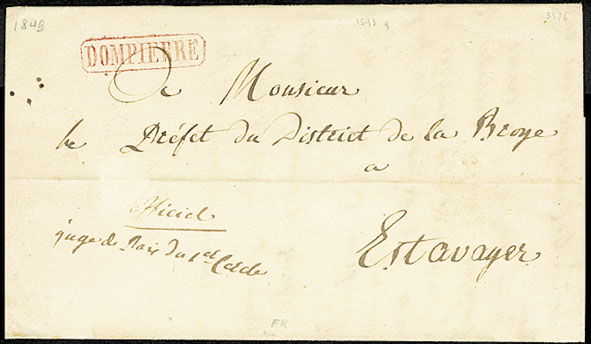 1849
1593
3376
DOMPIERRE
A Monsieur
le Préfet du District de la Broye
a
Estavayer
officiel
juge de Paix du 1er Cercle
FR